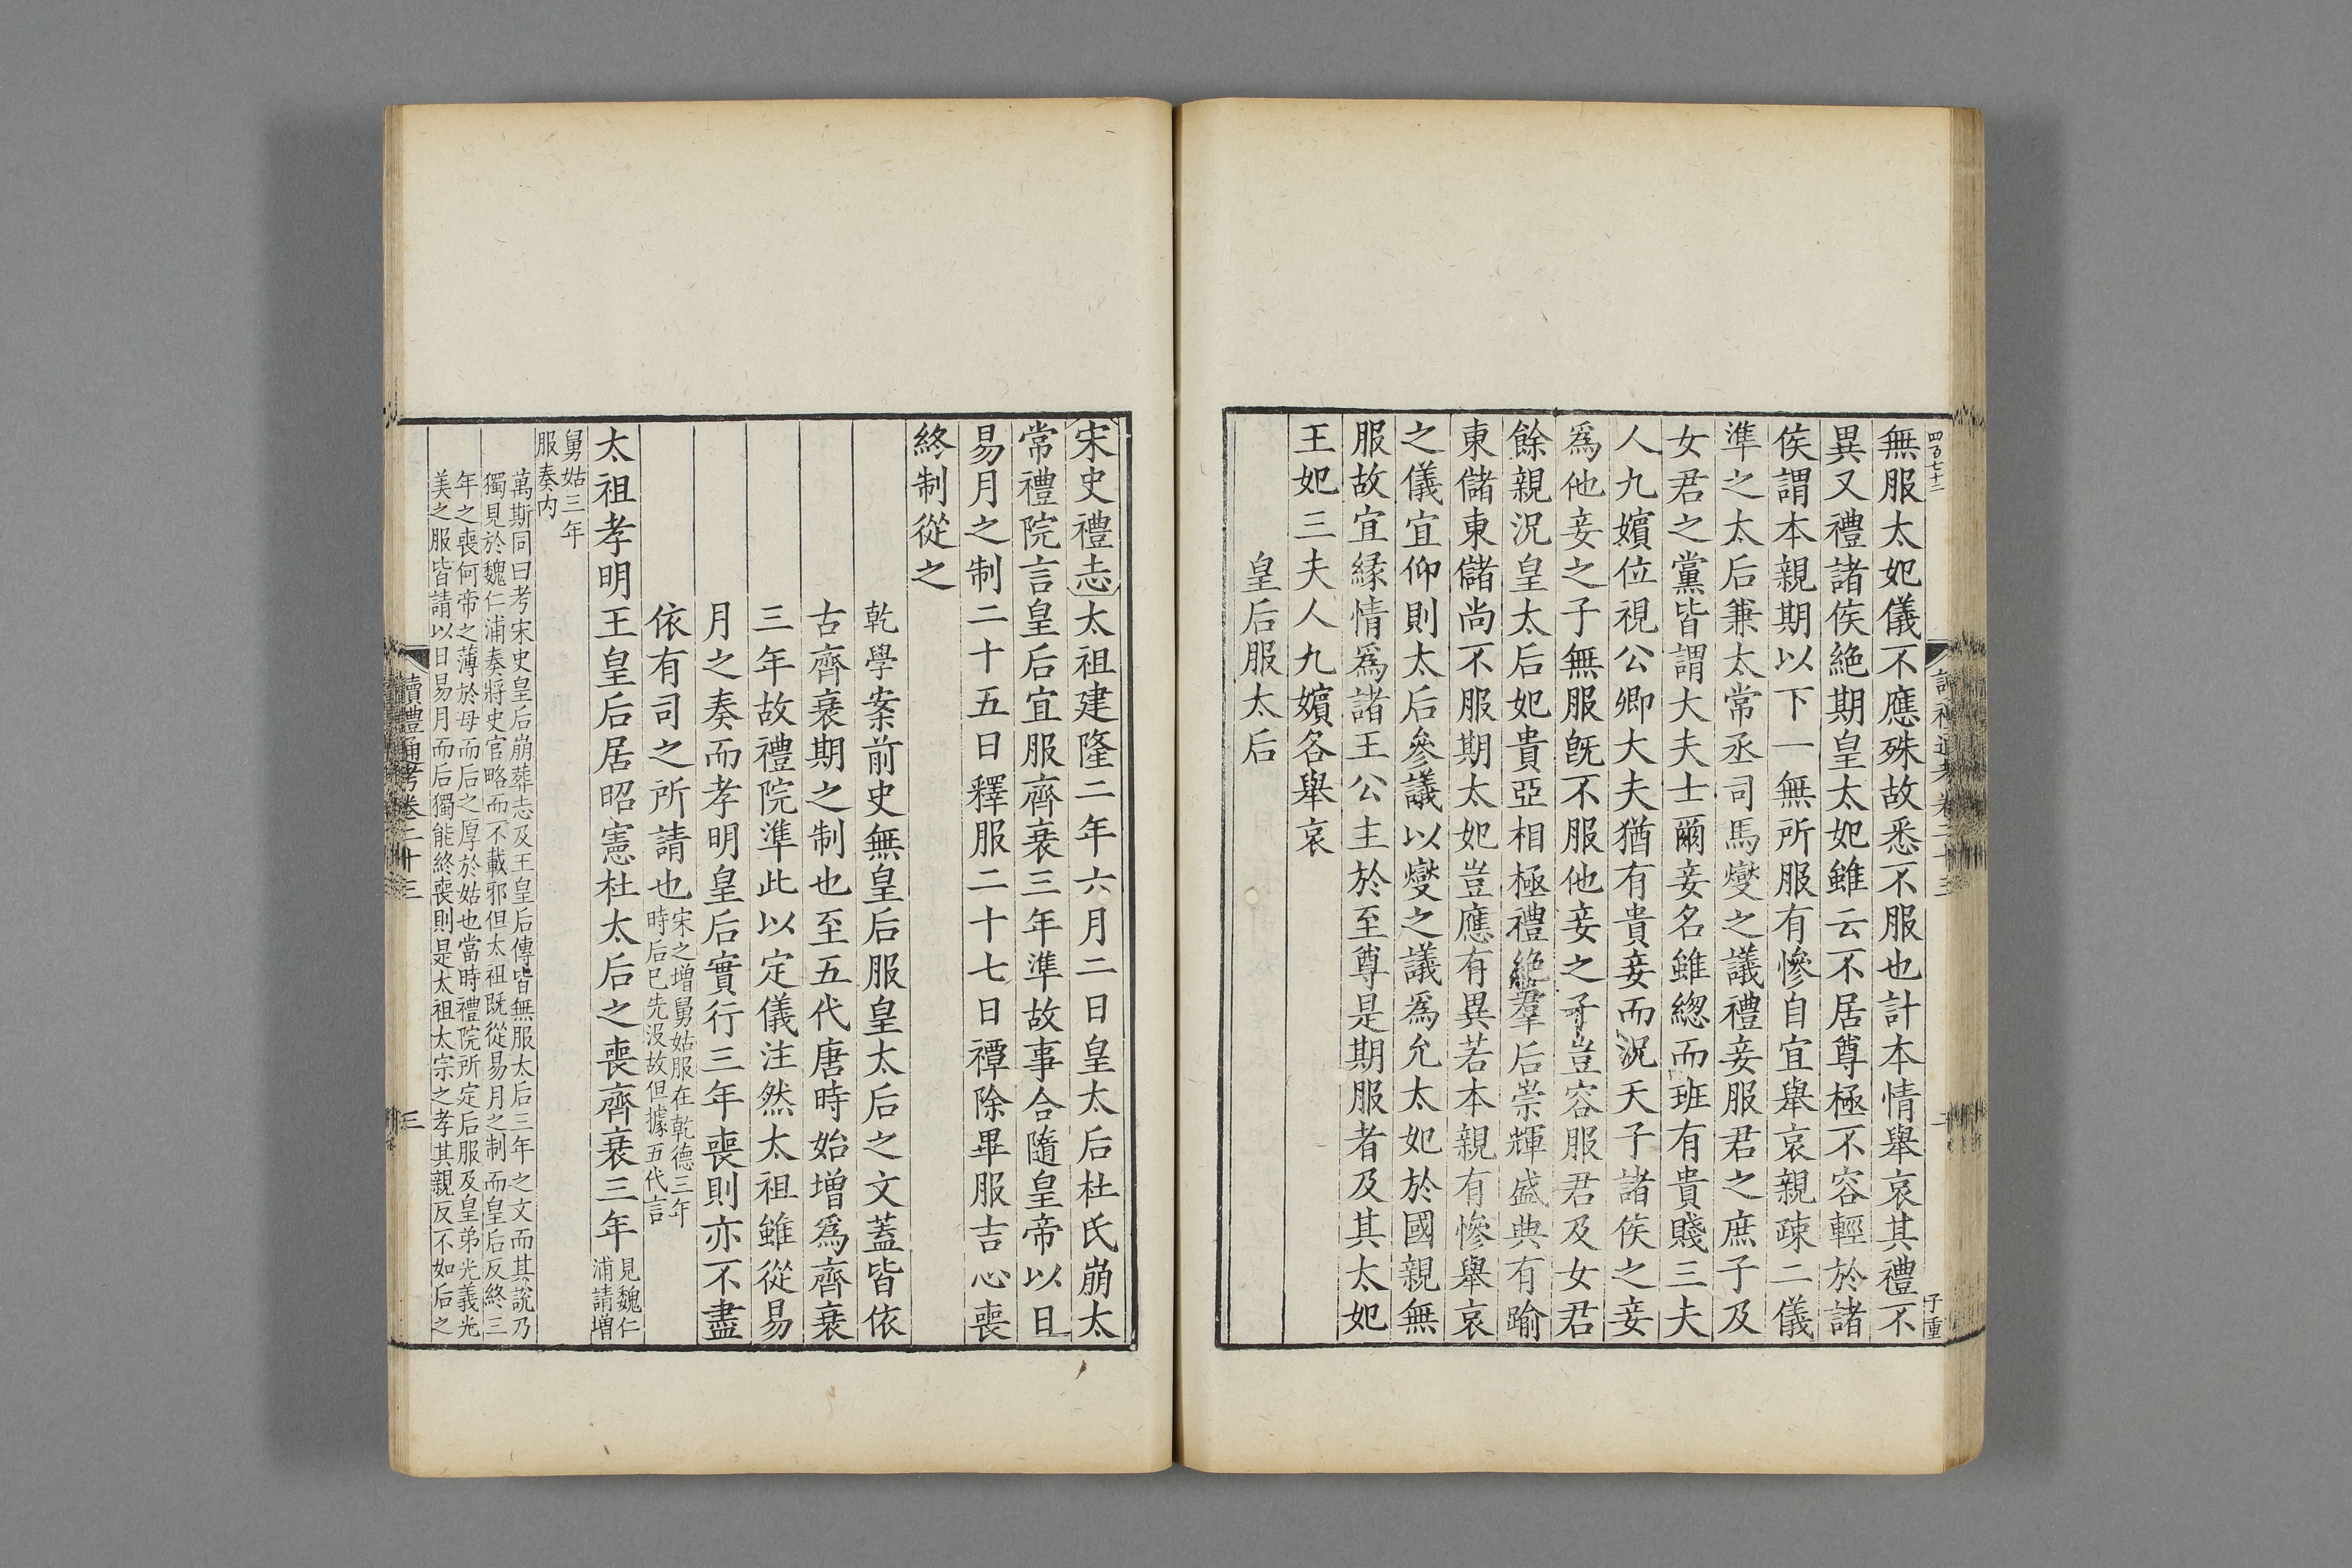 四百七十二
無服太妃儀不應殊故悉不服也計本情舉哀其禮不
異又禮諸侯絶期皇太妃雖云不居尊極不容輕於諸
侯謂本親期以下一無所服有慘自宜舉哀親疎二儀
準之太后兼太常丞司馬燮之議禮妾服君之庶子及
女君之黨皆謂大夫士爾妾名雖緫而班有貴賤三夫
人九嬪位視公卿大夫猶有貴妾而況天子諸侯之妾
爲他妾之子無服旣不服他妾之子豈容服君及女君
餘親況皇太后妃貴亞相極禮絶羣后崇輝盛典有踰
東儲東儲尚不服期太妃豈應有異若本親有慘舉哀
之儀宜仰則太后參議以燮之議爲允太妃於國親無
服故宜縁情爲諸王公主於至尊是期服者及其太妃
王妃三夫人九嬪各舉哀
皇后服太后
子重
宋史禮志太祖建隆二年六月二日皇太后杜氏崩太
常禮院言皇后宜服齊衰三年準故事合隨皇帝以日
易月之制二十五日釋服二十七日禫除畢服吉心喪
終制從之
乾學案前史無皇后服皇太后之文蓋皆依
古齊衰期之制也至五代唐時始增爲齊衰
三年故禮院準此以定儀注然太祖雖從易
月之奏而孝明皇后實行三年喪則亦不盡
依有司之所請也宋之增舅姑服在乾德三年
時后已先沒故但據五代言
太祖孝明王皇后居昭憲杜太后之喪齊衰三年見魏仁
浦請增
舅姑三年
服奏内
萬斯同曰考宋史皇后崩葬志及王皇后傳皆無服太后三年之文而其說乃
獨見於魏仁浦奏將史官略而不載邪但太祖既從易月之制而皇后反終三
年之喪何帝之薄於母而后之厚於姑也當時禮院所定后服及皇弟光義光
美之服皆請以日易月而后獨能終喪則是太祖太宗之孝其親反不如后之
讀禮通考卷二十三
三